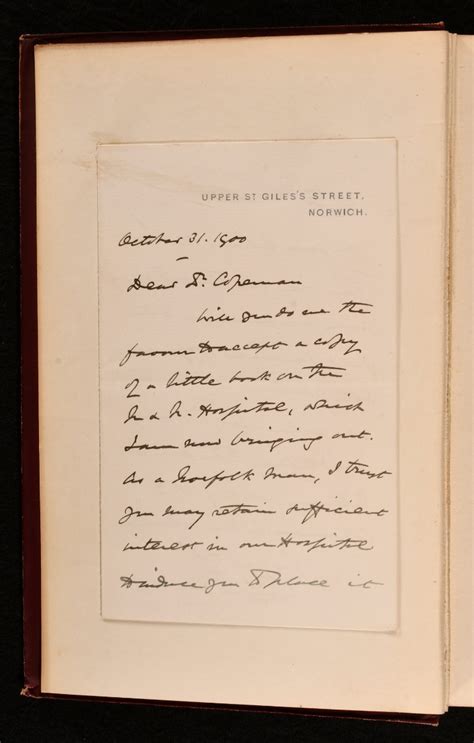 UPPER ST GILES'S STREET,
NORWICH.
October 31. 1900
Dear Dr. Copeman
Will you do me the
favour to accept a copy
of a little book on the
N & N. Hospital, which
I am now bringing out.
As a Norfolk man, I trust
you may retain sufficient
interest in our Hospital
to induce you to place it